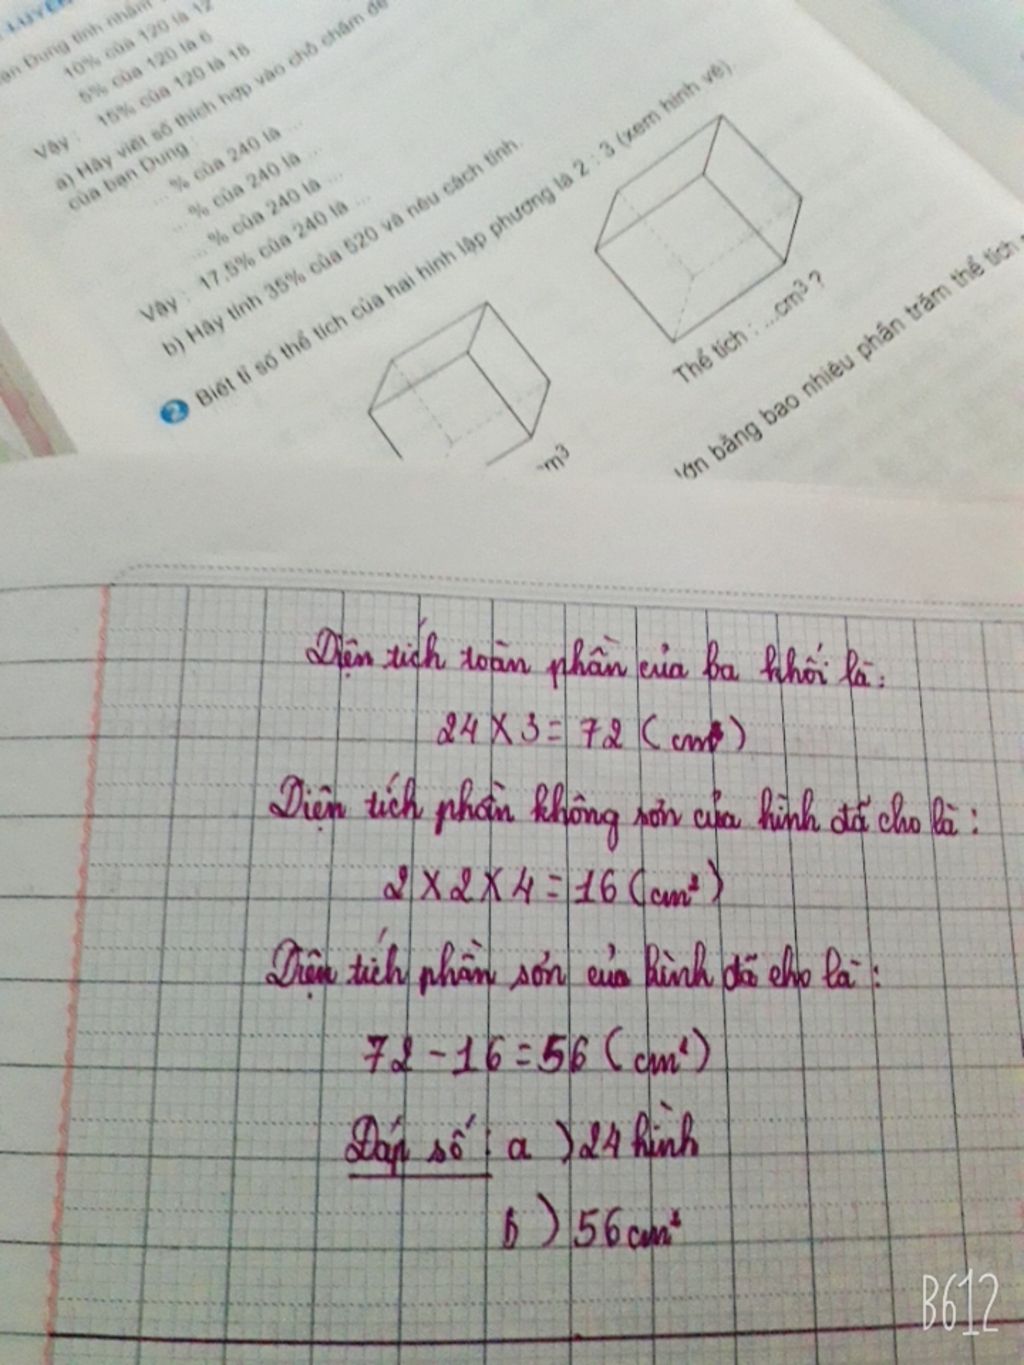 LUYỆN
Dung tính nhẩm
10% của 120 là 12
5% của 120 là 6
Vậy : 15% của 120 là 18
a) Hãy viết số thích hợp vào chỗ chấm để
của bạn Dung :
... % của 240 là ...
... % của 240 là ...
... % của 240 là ...
Vậy : 17,5% của 240 là ...
b) Hãy tính 35% của 520 và nêu cách tính.
2 Biết tỉ số thể tích của hai hình lập phương là 2 : 3 (xem hình vẽ).
cm3
Thể tích : ...cm3 ?
lớn bằng bao nhiêu phần trăm thể tích
Diện tích toàn phần của ba khối là:
24 x 3 = 72 (cm²)
Diện tích phần không sơn của hình đã cho là:
2 x 2 x 4 = 16 (cm²)
Diện tích phần sơn của hình đã cho là:
72 - 16 = 56 (cm²)
Đáp số : a ) 24 hình
b ) 56 cm²
B612